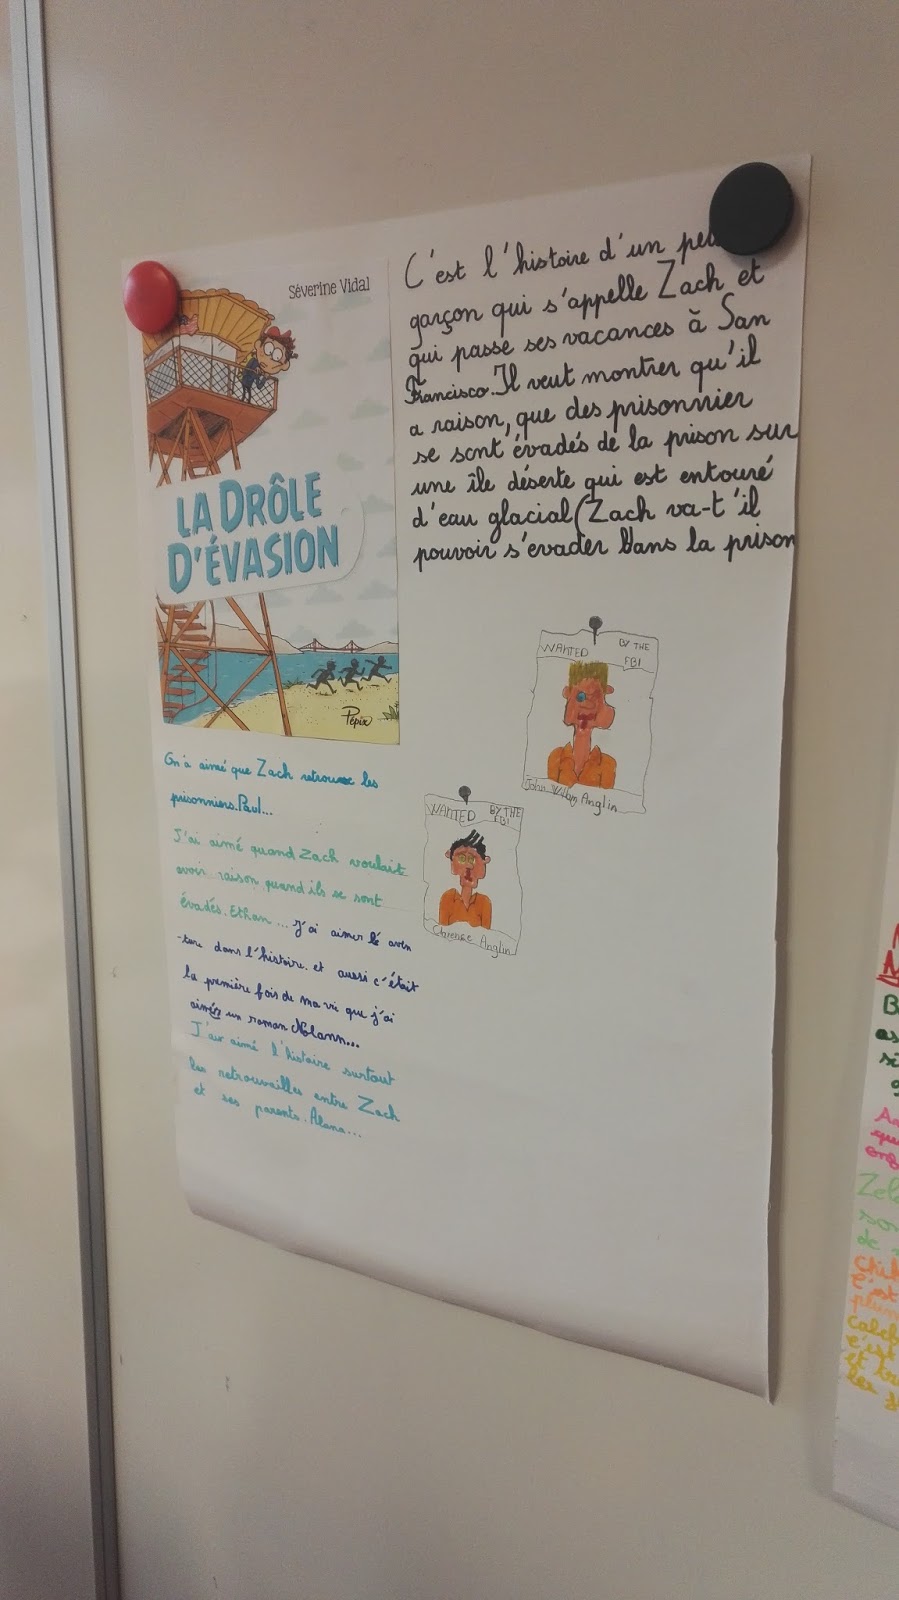 Séverine Vidal
LA DRÔLE
D'ÉVASION
Pépix
C'est l'histoire d'un
garçon qui s'appelle Zach et
qui passe ses vacances à San
Francisco. Il veut montrer qu'il
a raison, que des prisonnier
se sont évadés de la prison sur
une île déserte qui est entouré
d'eau glacial (Zach va-t'il
pouvoir s'evader dans la prison
WANTED BY THE
FBI
John William Anglin
WANTED BY THE
FBI
Clarence Anglin
On a aimé que Zach retrouve les
prisonniers. Paul...
J'ai aimé quand Zach voulait
avoir raison quand ils se sont
évadés. Ethan... J'ai aimer lé aven
-ture dans l'histoire. et aussi c'était
la première fois de ma vie que j'ai
aimér un roman Nolann...
J'ai aimé l'histoire surtout
les retrouvailles entre Zach
et ses parents. Alana...
Zel
de
c'est
Caleb
c'est